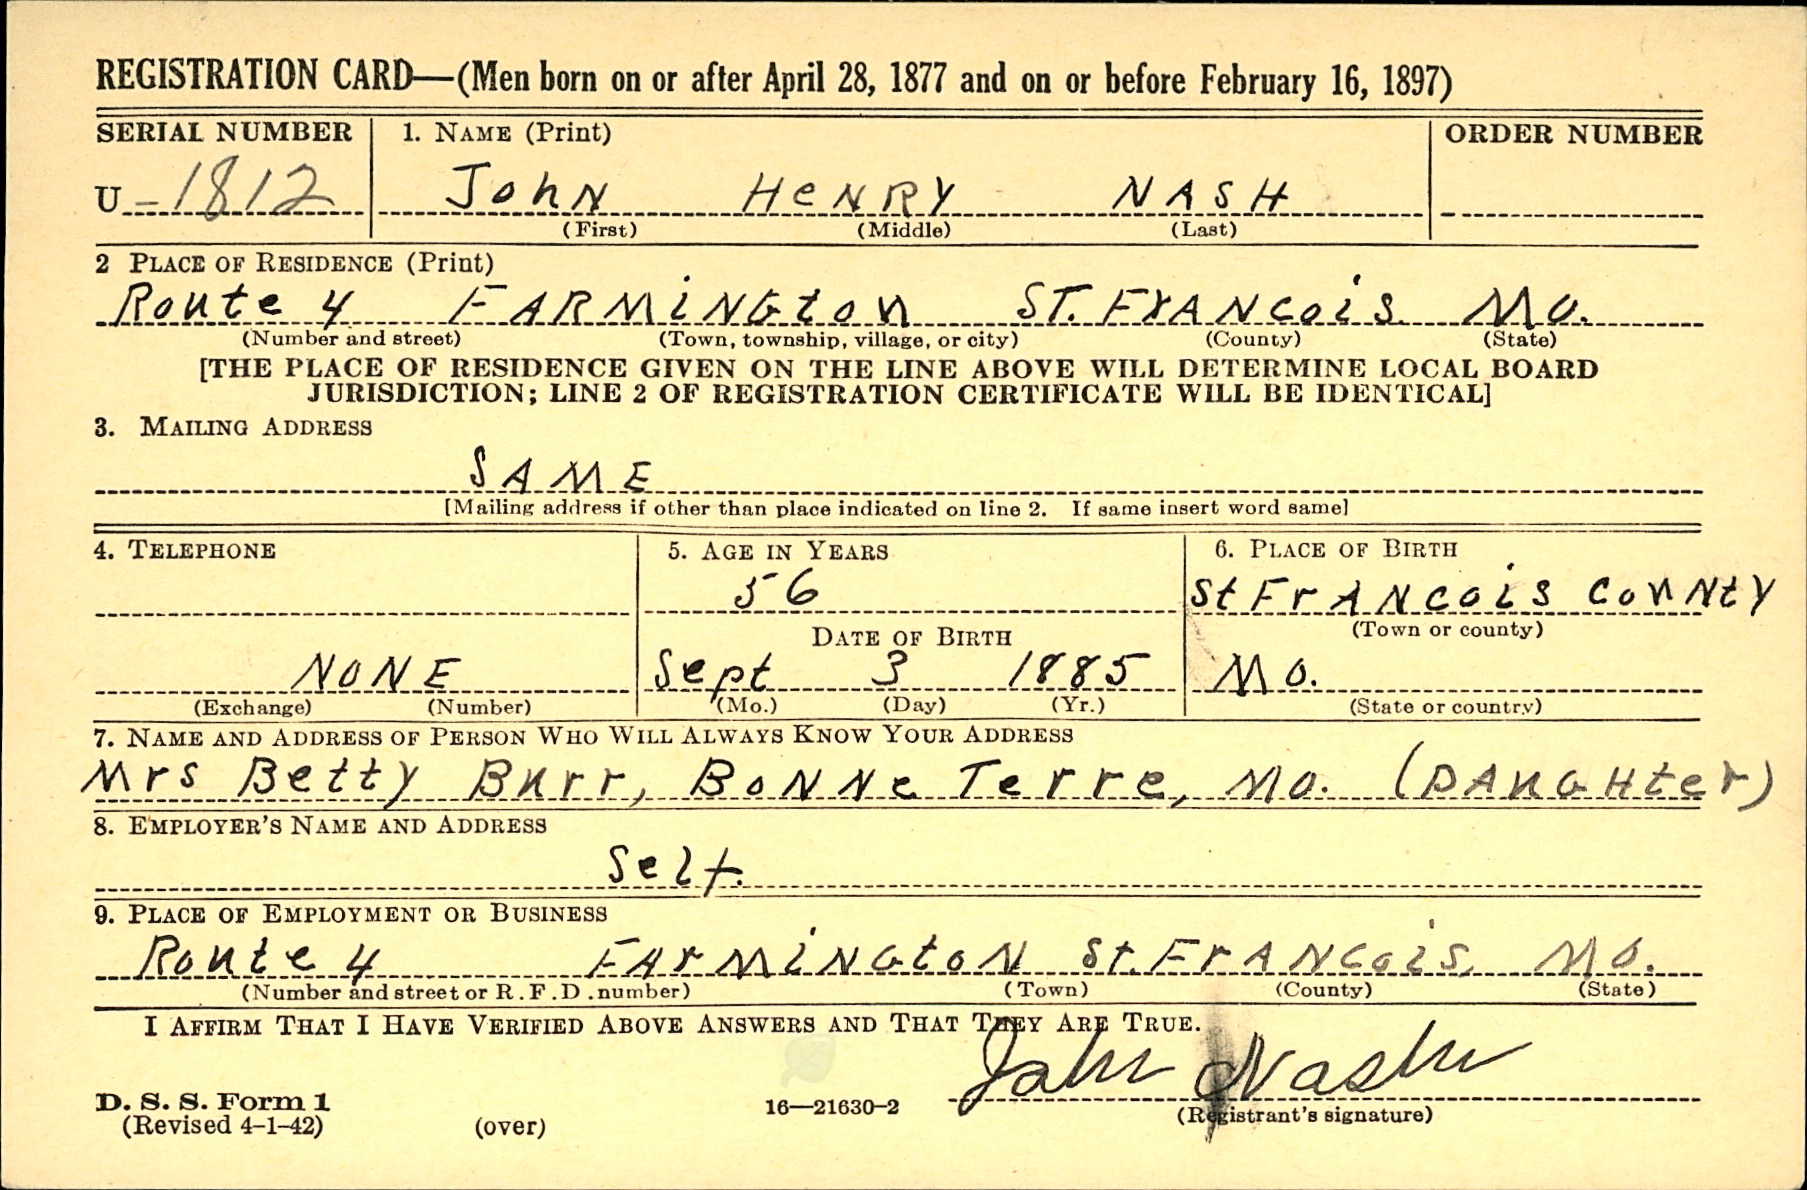 REGISTRATION CARD—(Men born on or after April 28, 1877 and on or before February 16, 1897)
SERIAL NUMBER 1. NAME (Print) ORDER NUMBER
U - 1812 JohN HeNRY NASH
(First) (Middle) (Last)
2 PLACE OF RESIDENCE (Print)
Route 4 FARMiNGtoN ST. FrANcois Mo.
(Number and street) (Town, township, village, or city) (County) (State)
[THE PLACE OF RESIDENCE GIVEN ON THE LINE ABOVE WILL DETERMINE LOCAL BOARD
JURISDICTION; LINE 2 OF REGISTRATION CERTIFICATE WILL BE IDENTICAL]
3. MAILING ADDRESS
SAME
[Mailing address if other than place indicated on line 2. If same insert word same]
4. TELEPHONE 5. AGE IN YEARS 6. PLACE OF BIRTH
56 St FrANcois CouNtY
DATE OF BIRTH (Town or county)
NONE Sept 3 1885 Mo.
(Exchange) (Number) (Mo.) (Day) (Yr.) (State or country)
7. NAME AND ADDRESS OF PERSON WHO WILL ALWAYS KNOW YOUR ADDRESS
Mrs Betty Burr, BoNNe Terre, Mo. (DAuGHter)
8. EMPLOYER'S NAME AND ADDRESS
Self.
9. PLACE OF EMPLOYMENT OR BUSINESS
Route 4 FArMiNGtoN St. FrANcois, Mo.
(Number and street or R.F.D. number) (Town) (County) (State)
I AFFIRM THAT I HAVE VERIFIED ABOVE ANSWERS AND THAT THEY ARE TRUE.
John Nash
D. S. S. Form 1
(Revised 4-1-42) (over) 16—21630-2 (Registrant's signature)